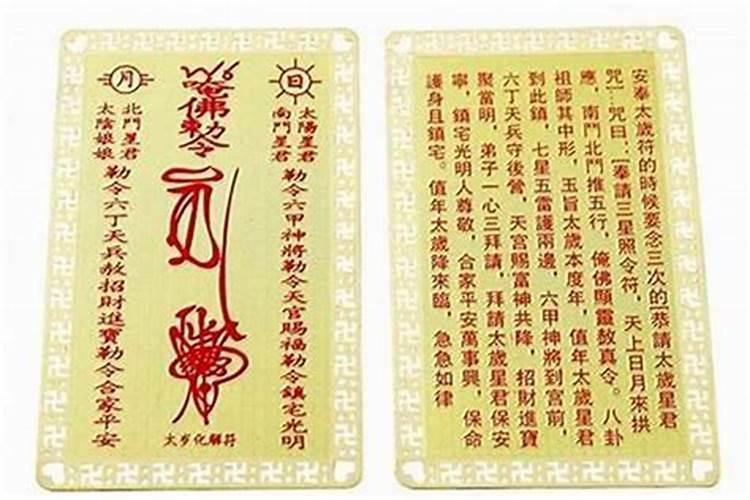 日
太陽星君
南鬥星君
勒令六甲神將勒令天官賜福勒令鎮宅光明
唵佛勅令
太岁化解符
月
北鬥星君
太陰娘娘
勒令六丁天兵赦招財進寶勒令合家平安
安奉太歲符的時候要念三次的[恭請太歲星君
咒]...咒曰:[奉請三星照令符,天上日月來拱
應,南鬥北鬥推五行,俺佛顯靈敖真令。八卦
祖師其中形,玉旨太歲本度年,值年太歲星君
到此鎮,七星五雷護兩邊,六甲神將到宮前,
六丁天兵守後營,天宮賜富神共降,招財進寶
聚當明,弟子一心三拜請,拜請太歲星君保安
寧,鎮宅光明人尊敬,合家平安萬事興,保命
護身且鎮宅。值年太歲降來臨,急急如律